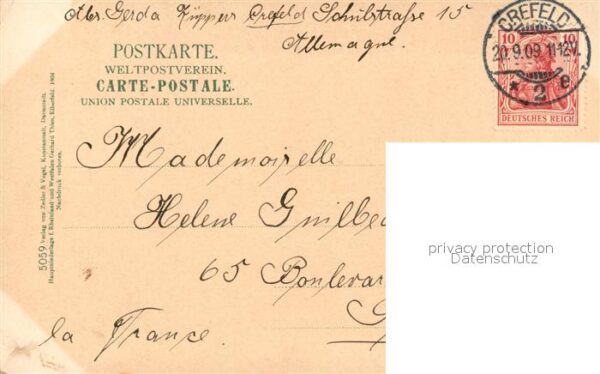 Abs. Gerda Küppers Crefeld Schulstrasse 15
Allemagne.
POSTKARTE.
WELTPOSTVEREIN.
CARTE-POSTALE.
UNION POSTALE UNIVERSELLE.
CREFELD
20.9.09. 11-12V.
* 2 e
10 10
DEUTSCHES REICH
Mademoiselle
Helene Guilbe
65 Boulevar
la France.
privacy protection
Datenschutz
5059 Verlag von Zedler & Vogel, Kunstanstalt, Darmstadt.
Hauptniederlage f. Rheinland und Westfalen Gerhard Thien, Elberfeld. 1904
Nachdruck verboten.